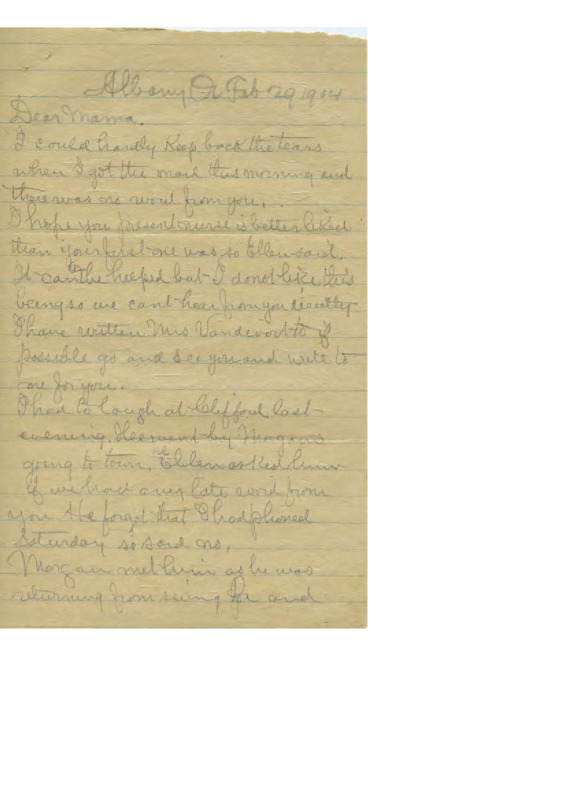 Albany Or Feb 29 1904
Dear Mama.
I could hardly keep back the tears
when I got the mail this morning and
there was no word from you.
I hope you present nurse is better liked
than your first one was so Ellen said.
It can't be helped but I do not like this
being so we cant hear from you directly
I have written Mrs Vandevort to if
possible go and see you and write to
me for you.
I had to laugh at Clifford last
evening. He went by Morgans
going to town. Ellen asked him
if we had any late word from
you He forgot that I had phoned
Saturday so said no,
Morgan met him as he was
returning from seeing and